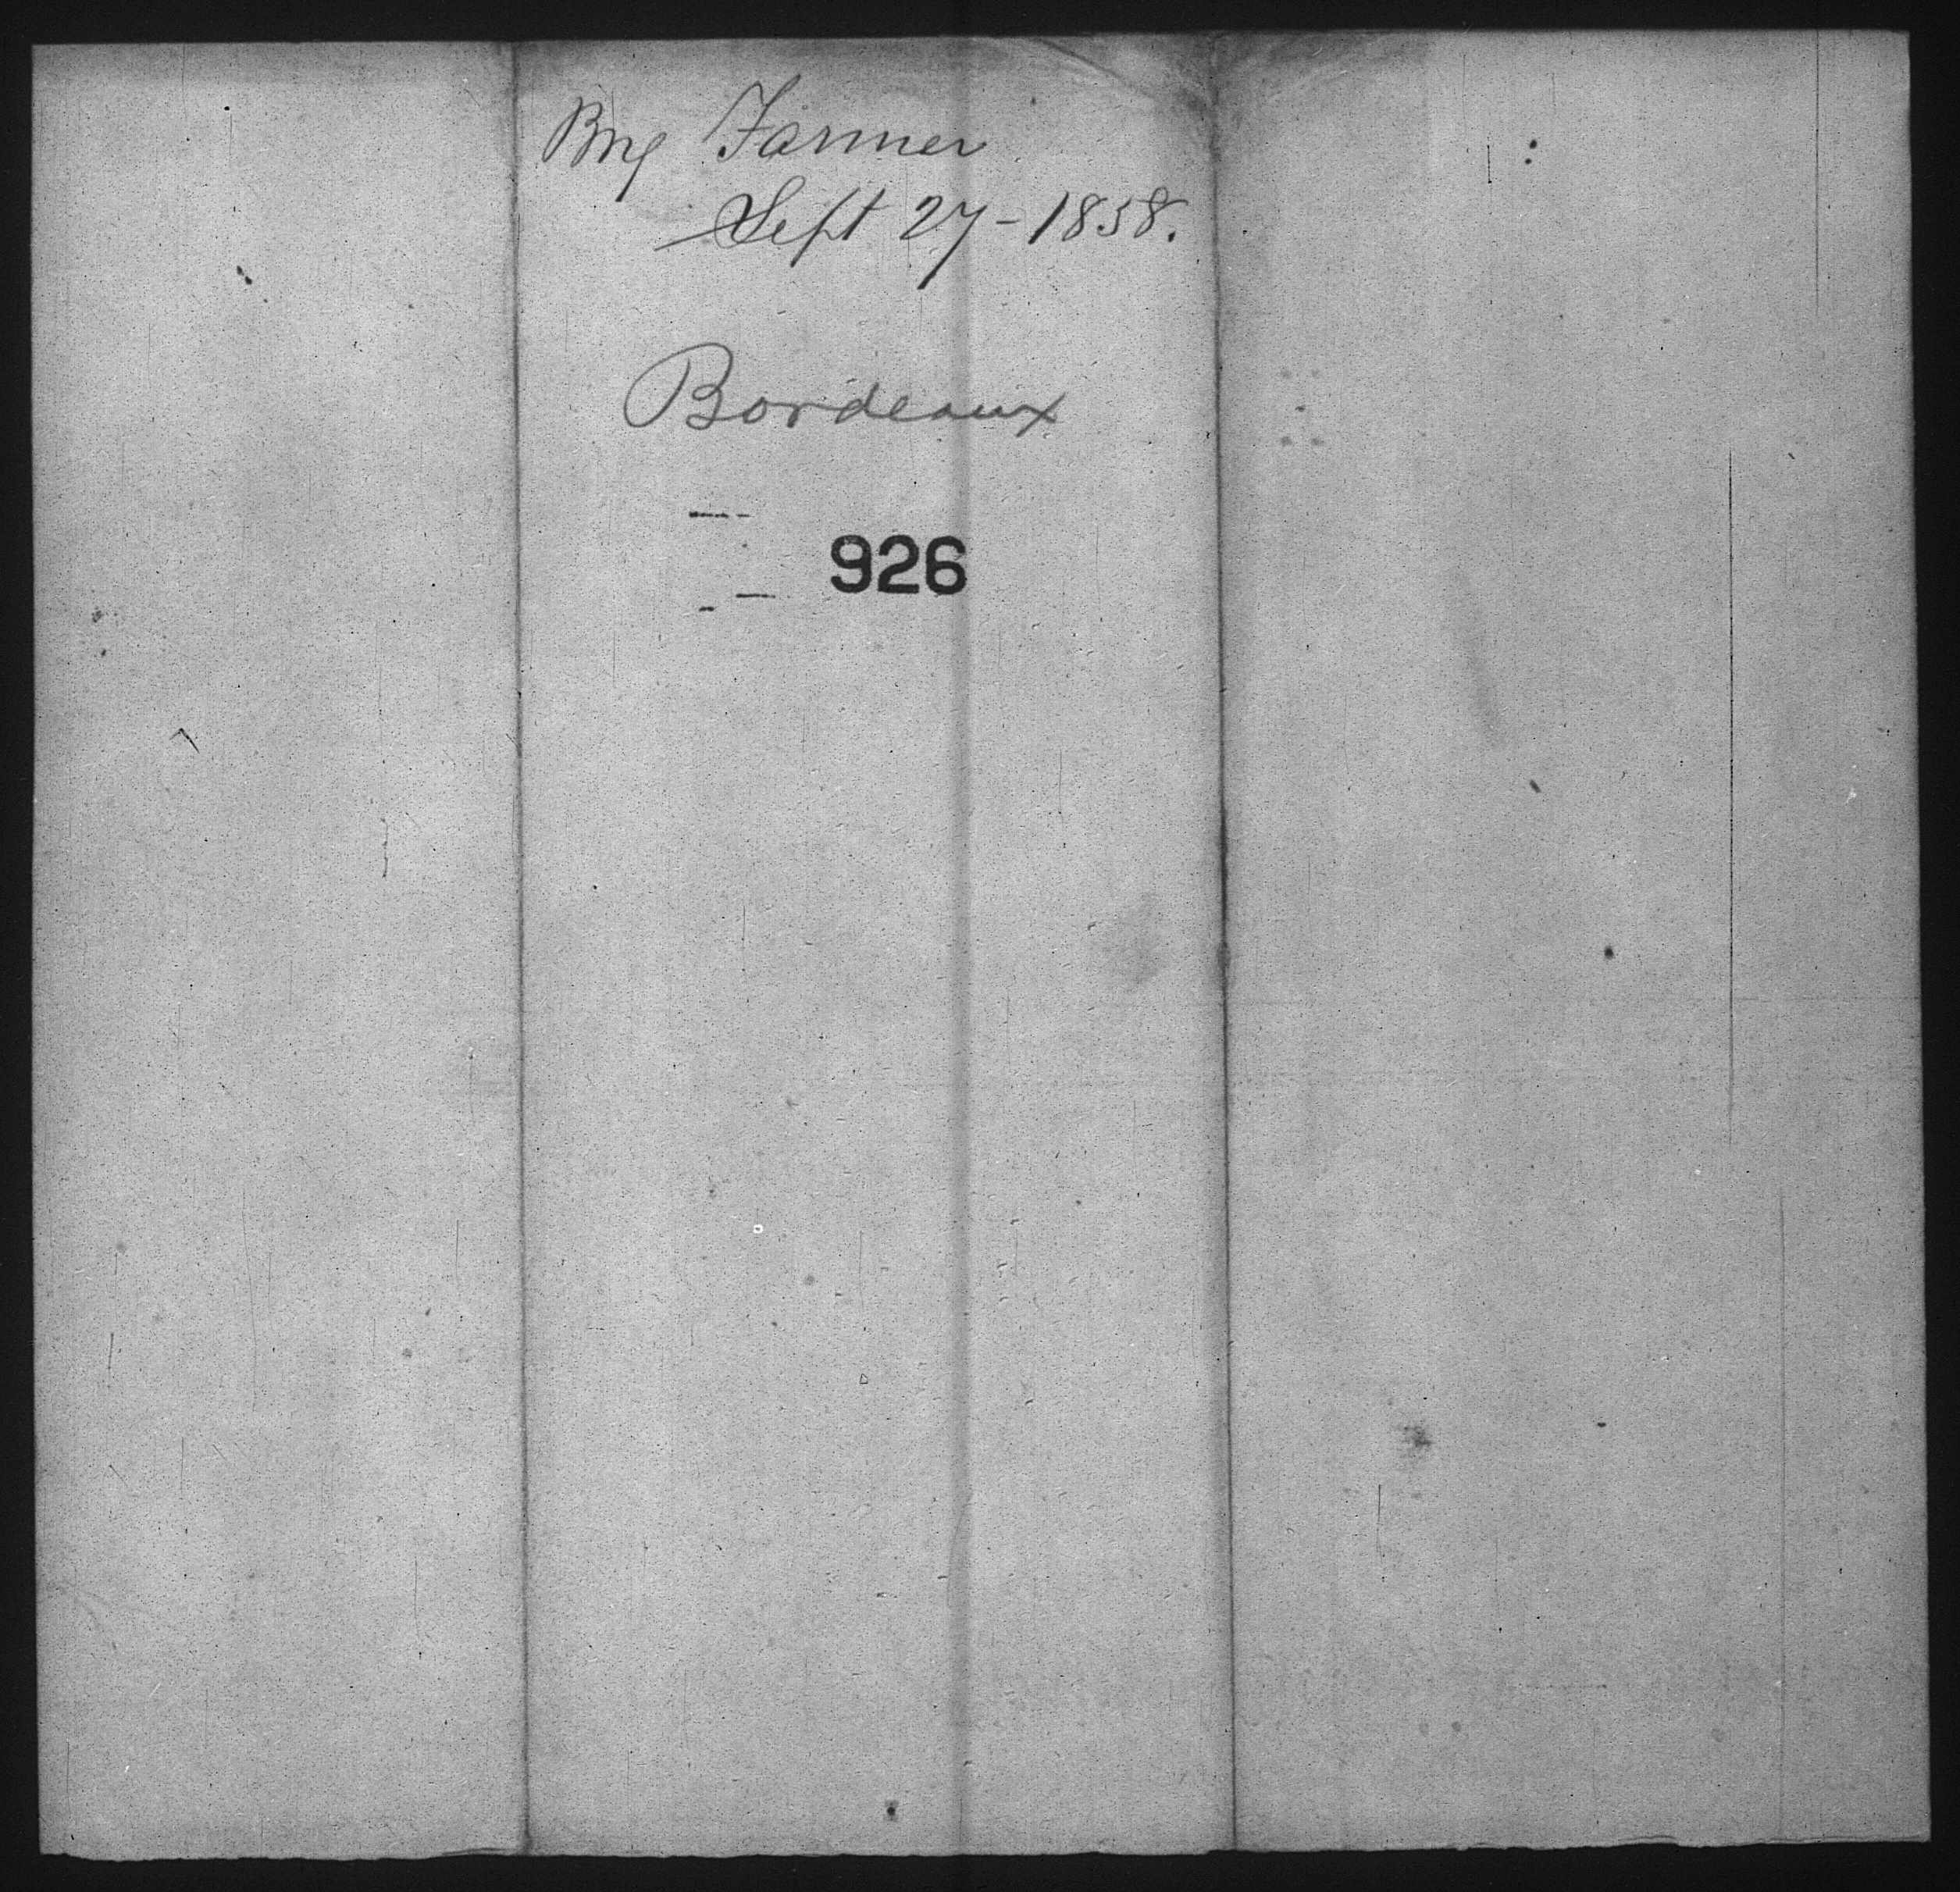 Brig Farmer
Sept 27 - 1858.
Bordeaux
926